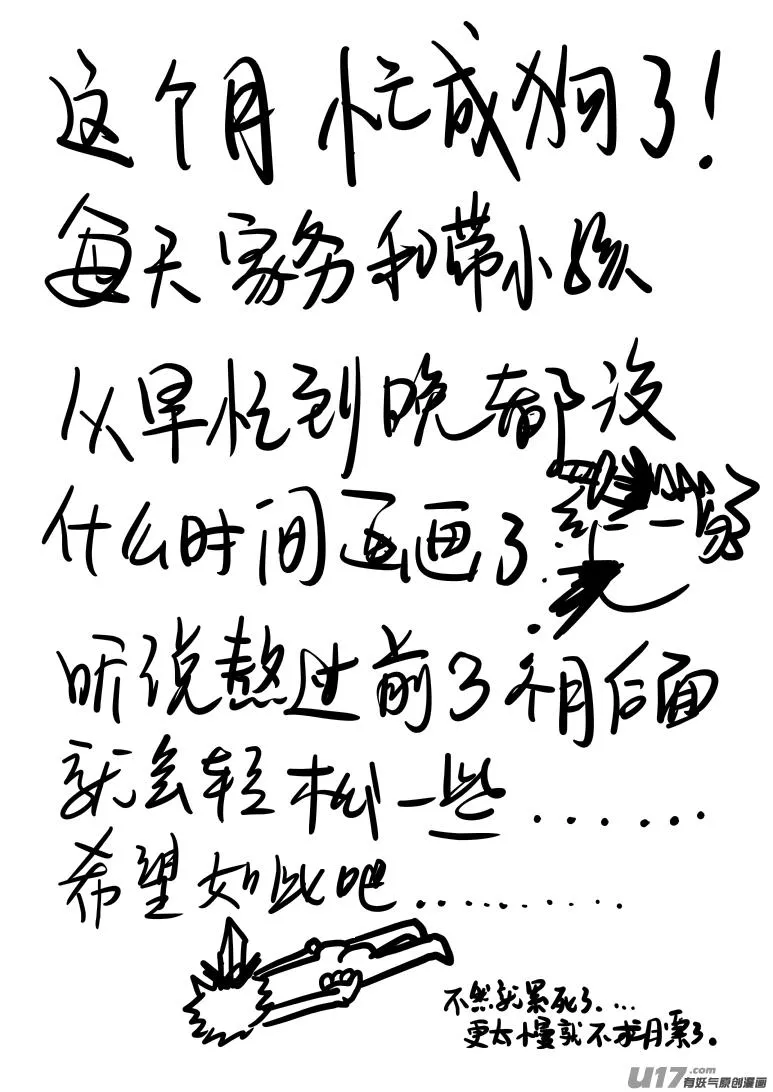 这个月忙成狗了!
每天家务和带小孩
从早忙到晚都没
什么时间画画了.
听说熬过前3个月后面
就会轻松一些......
希望如此吧..........
不然就累死了....
更太慢就不求月票了。
U17.com
有妖气原创漫画